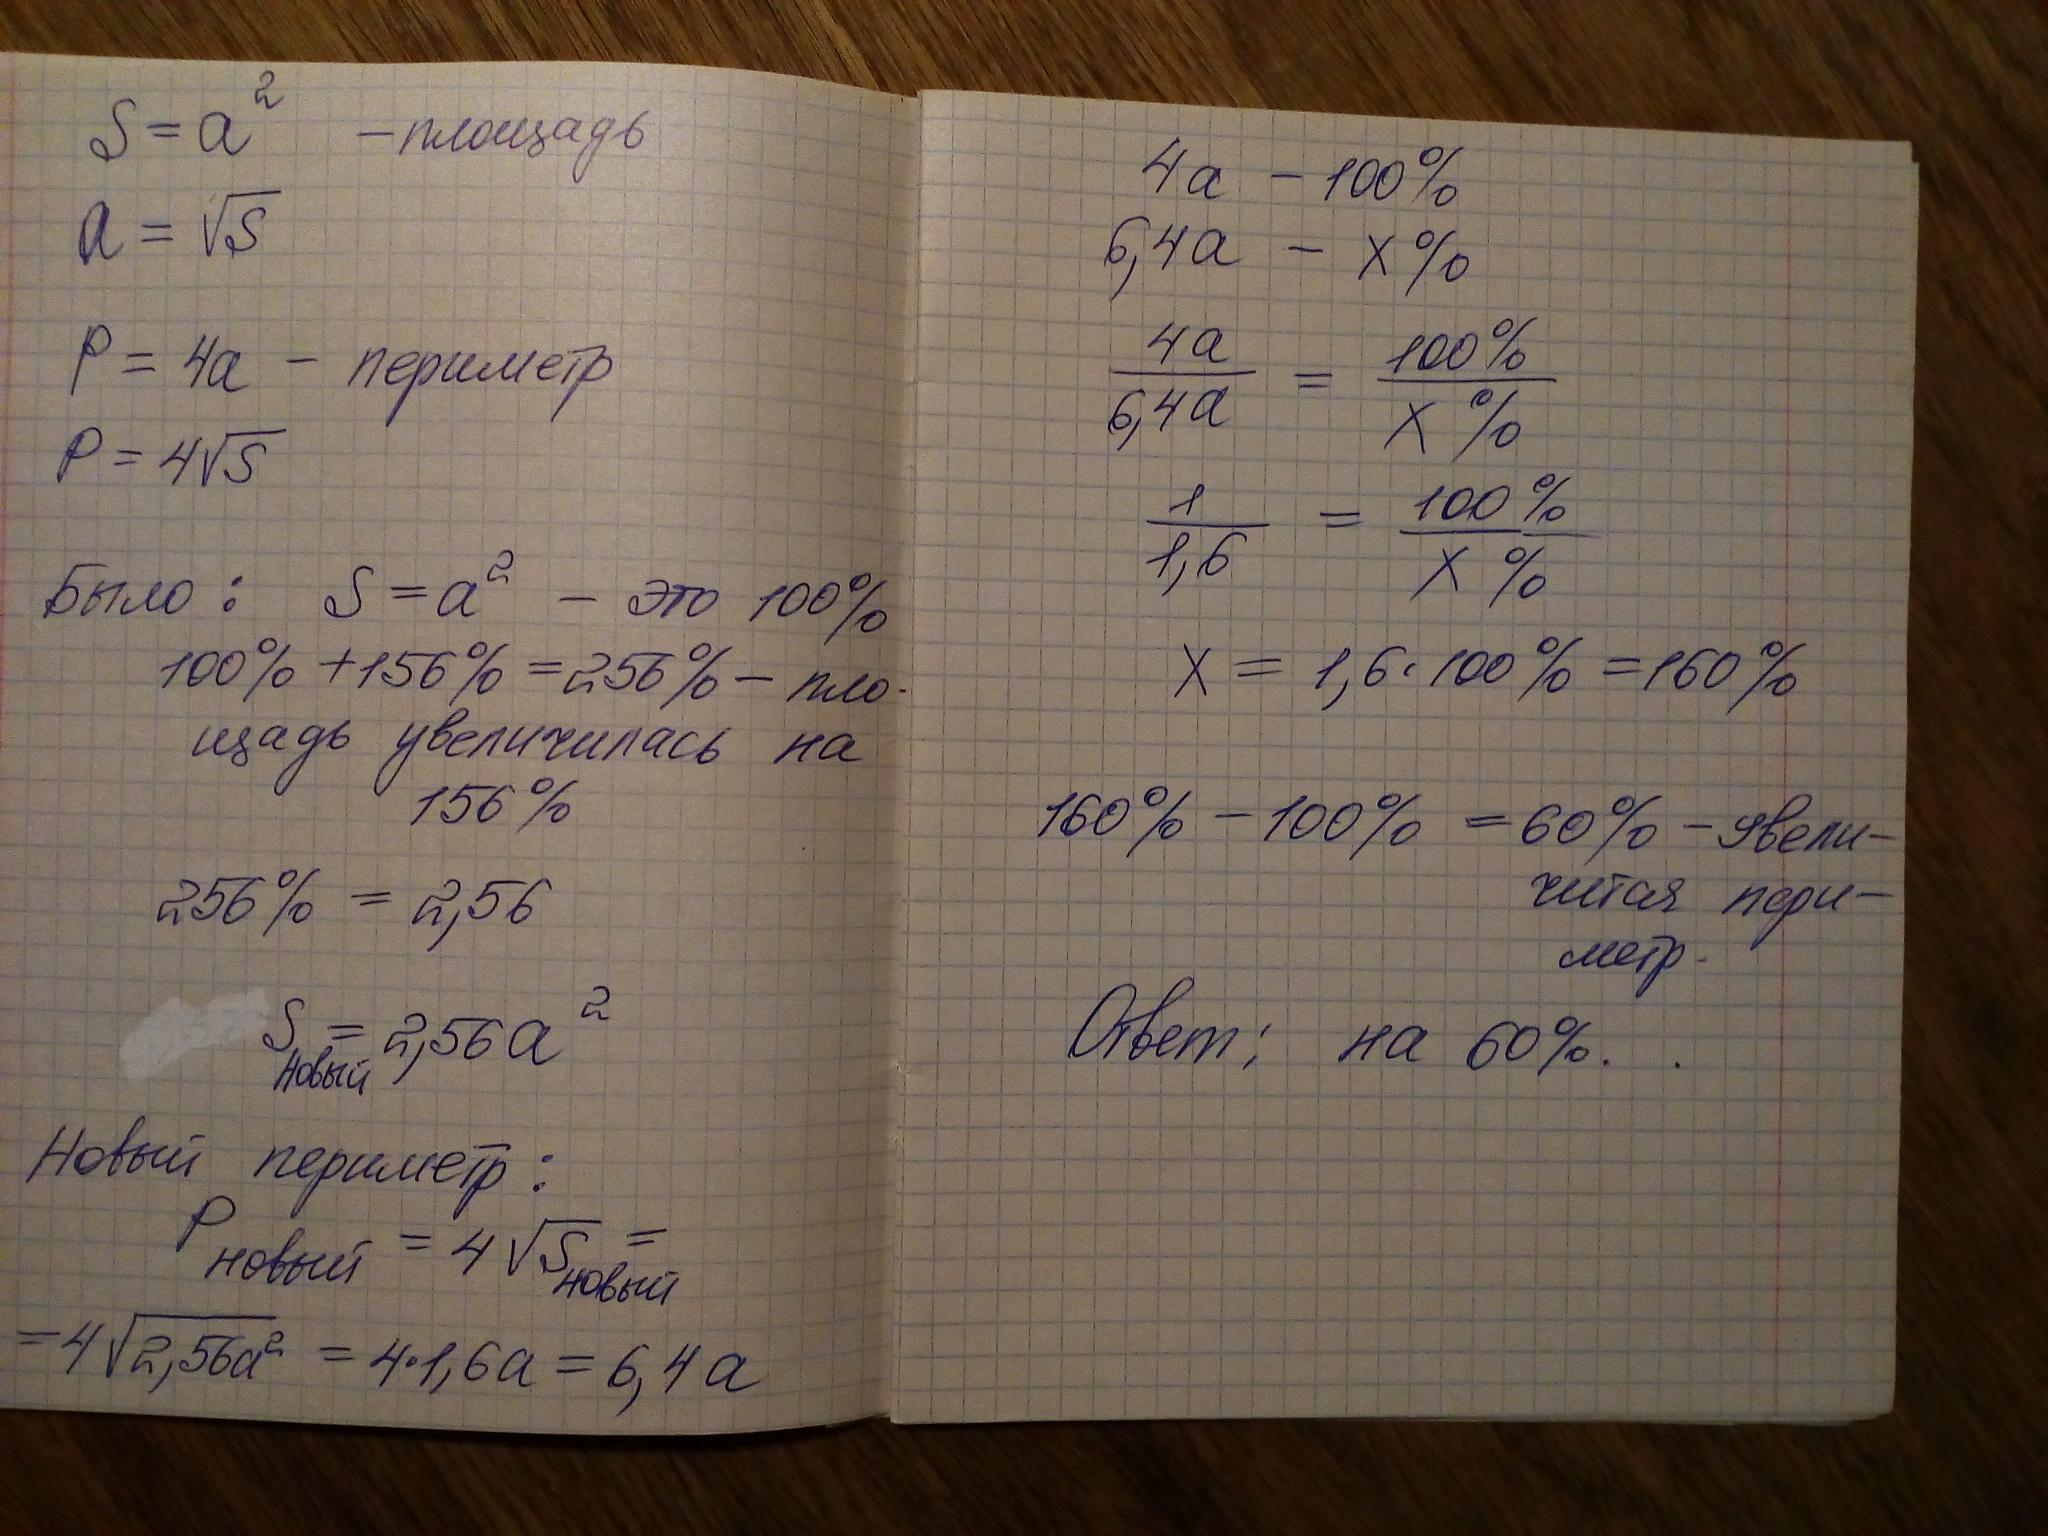 S = a² – площадь
a = √S
P = 4a – периметр
P = 4√S
Было: S = a² – это 100%
100% + 156% = 256% – пло-
щадь увеличилась на
156%
256% = 2,56
S новый = 2,56a²
Новый периметр:
P новый = 4√S новый =
= 4√2,56a² = 4·1,6a = 6,4a
4a – 100%
6,4a – x%
4a/6,4a = 100%/x%
1/1,6 = 100%/x%
x = 1,6·100% = 160%
160% – 100% = 60% – увели-
чится пери-
метр.
Ответ: на 60%.